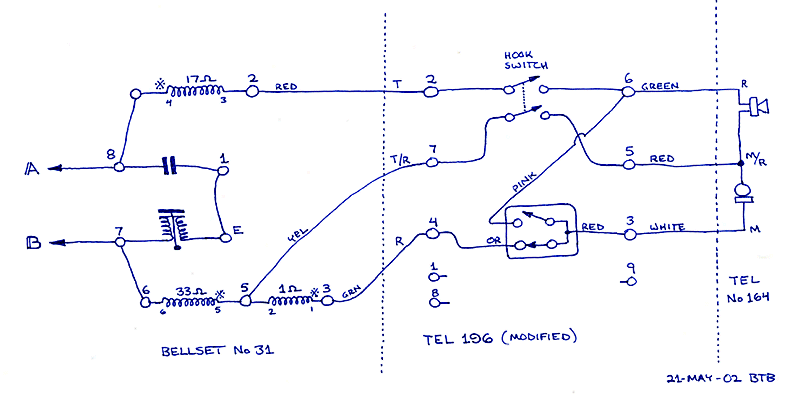 HOOK
SWITCH
※ 17Ω 2 RED T 2 6 GREEN R
4 3
8 A 1 T/R 7 5 RED M/R
PINK
7 B E YEL R 4 OR RED 3 WHITE M
6 33Ω ※ 5 1Ω ※ 3 GRN 1 9
6 5 2 1 8
TEL
No 164
BELLSET No 31
TEL 196 (MODIFIED)
21-MAY-02 BTB